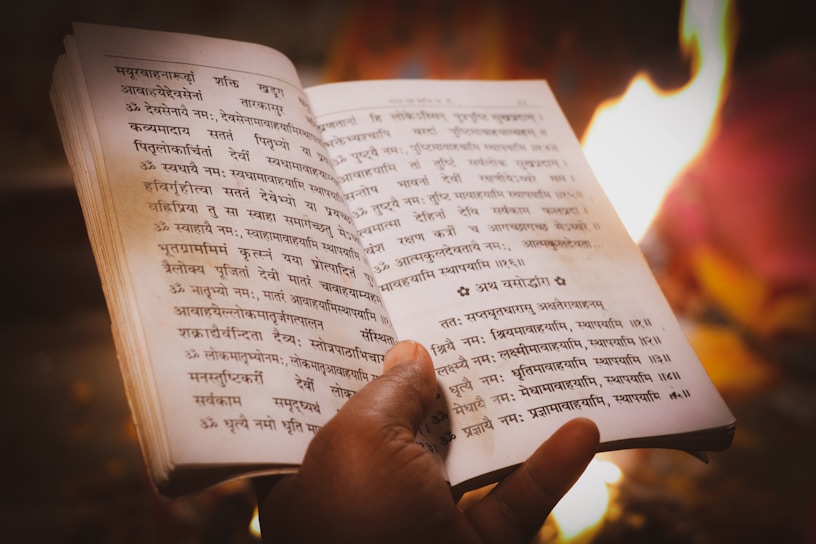 मयूरवाहनारूढां शक्ति खड्ग
आवाहयेद्देवसेनां तारकासुर
ॐ देवसेनायै नमः, देवसेनामावाहयामिस्थाप
कव्यमादाय सततं पितृभ्यो या प्र
पितृलोकार्चितां देवीं स्वधामावाहया
ॐ स्वधायै नमः, स्वधामावाहयामि स्थापयामि
हविर्गृहीत्वा सततं देवेभ्यो या प्रयच्छ
वह्निप्रिया तु सा स्वाहा समागच्छतु मे
ॐ स्वाहायै नमः, स्वाहामावाहयामि स्थापयामि
भूतग्राममिमं कृत्स्नं यया प्रोत्पादितं
त्रैलोक्य पूजितां देवीं मातरं चावाहयाम्यहम
ॐ मातृभ्यो नमः, मातरं आवाहयामिस्थापयामि
आवाहयेल्लोकमातृर्जगत्पालन संस्थिता
शक्राद्यैर्वन्दिता देव्यः स्तोत्रपाठाभिचार
ॐ लोकमातृभ्योनमः, लोकमातृआवाहयामि
मनस्तुष्टिकरीं देवीं लोक
सर्वकाम समृद्ध्यर्थं
ॐ धृत्यै नमो धृति मा
प्रणतानां हि लोकेऽस्मिन् पुत्रपुष्टि सुखप्रदाम् ।
वरदां
ॐ पुष्ट्यै नमः, पुष्टिमावाहयामि स्थापयामि
आवाहयामि तां तुष्टिं सर्वलोक सुखप्रदाम् ।
सन्तोष भावनां देवीं
ॐ तुष्ट्यै नमः, तुष्टि मावाहयामि स्थापयामि ॥१५॥
देहिनां देवि सर्वकाम फलप्रदा ।
वंश रक्षण कर्त्री च
ॐ आत्मकुलदेवतायै नमः, आत्मकुलदेवता...
मावाहयामि स्थापयामि ॥१६॥
✿ अथ वसोर्द्धारा ✿
ततः सप्तघृतधारासु अक्षतैरावाहनम्
श्रियै नमः श्रियमावाहयामि, स्थापयामि ॥१॥
लक्ष्म्यै नमः लक्ष्मीमावाहयामि, स्थापयामि ॥२॥
ॐ धृत्यै नमः धृतिमावाहयामि, स्थापयामि ॥३॥
ॐ मेधायै नमः मेधामावाहयामि, स्थापयामि ॥४॥
ॐ प्रज्ञायै नमः प्रज्ञामावाहयामि, स्थापयामि ॥५॥